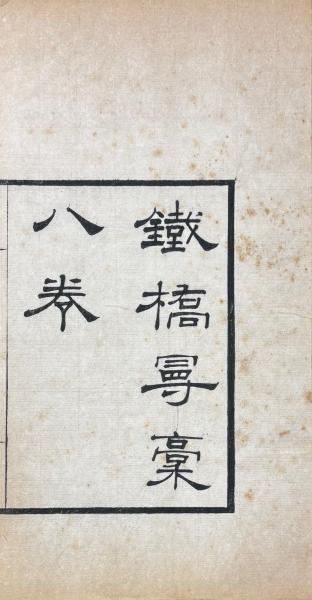 鐵橋曼稾
八卷